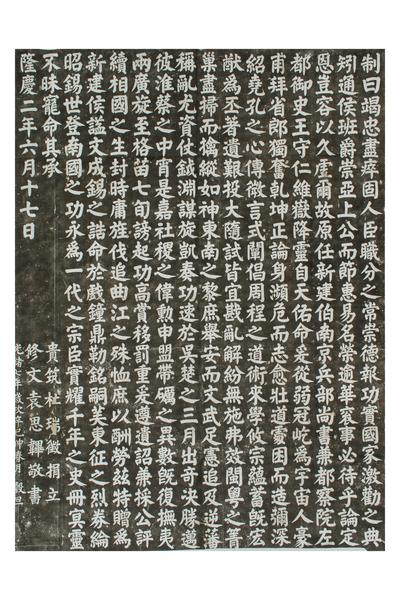 制曰竭忠盡瘁固人臣職分之常崇德報功實國家激勸之典
矧通侯班爵崇亞上公而節惠易名榮逾華袞事必待乎論定
恩豈容以久虛爾故原任新建伯南京兵部尚書兼都察院左
都御史王守仁維嶽降靈自天佑命爰從弱冠屹為宇宙人豪
甫拜省郎獨奮乾坤正論身瀕危而志愈壯道處困而造彌深
紹堯孔之心傳微言式闡倡周程之道術來學攸宗蘊蓄既宏
猷為丕著遺艱投大隨試皆宜戡亂解紛無施弗效閩粵之箐
巢盡掃而擒縱如神東南之黎庶舉安而文武足憲追及逆藩
稱亂尤資仗鉞淵謀旋凱奏功速於吳楚之三月出奇決勝邁
彼淮蔡之中宵是嘉社稷之偉勳申盟帶礪之異數既復撫夷
兩廣旋至格苗七旬謗起功高賞移罰重爰遵遺詔兼採公評
續相國之生封時庸旌伐追曲江之殊恤庶以酬勞茲特贈為
新建侯諡文成錫之誥命於戲鐘鼎勒銘嗣美東征之烈券綸
昭錫世登南國之功永為一代之宗臣實耀千年之史冊冥靈
不昧寵命其承
隆慶二年六月十七日
貴筑杜瑞徵捐立
修文袁思韠敬書
光緒七年歲次辛巳仲春月穀旦